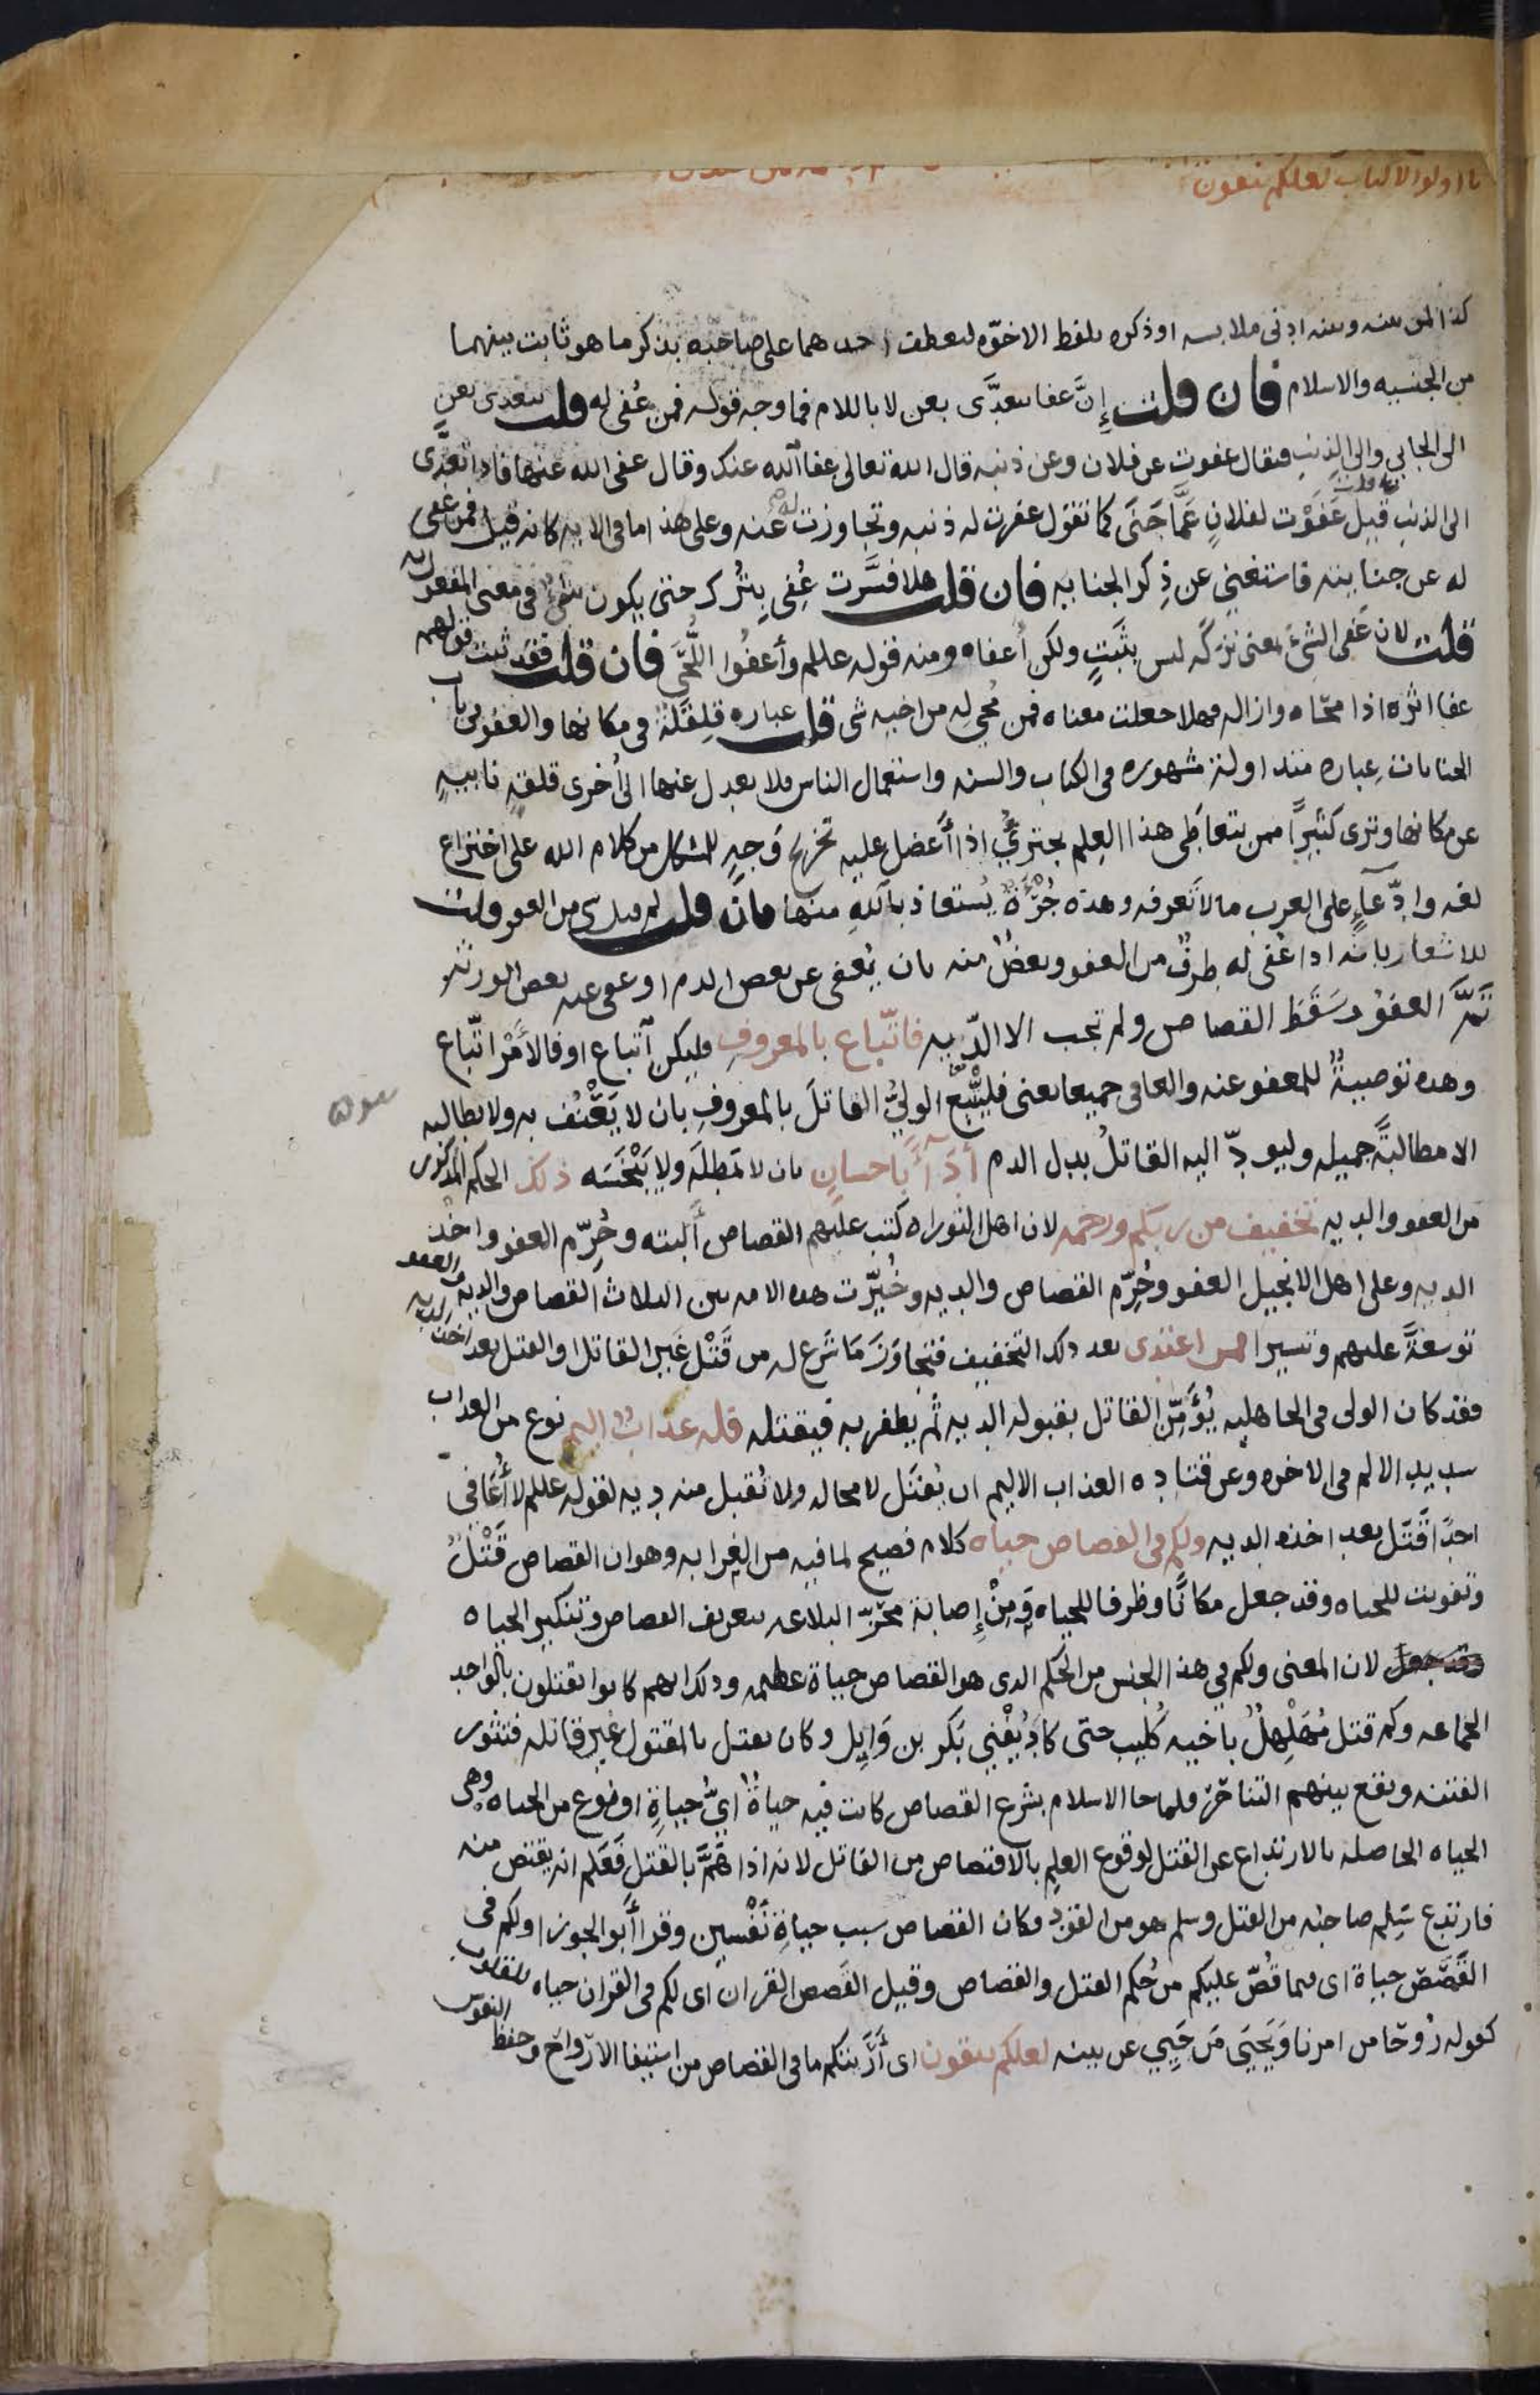 يا اولوا الالباب لعلكم تتقون
كذا لمن بينه وبينه ادنى ملابسه او ذكره بلفظ الاخوّه ليعطف احدهما على صاحبه بذكر ما هو ثابت بينهما
من الجنسيه والاسلام فان قلت إنَّ عفا يتعدَّى بعن لا باللام فما وجه قوله فمن عُفى له قلت يتعدى بعن
الى الجاني والى الذنب فيقال عفوت عن فلان وعن ذنبه قال الله تعالى عفا الله عنك وقال عفى الله عنها فاذا تعدَّى
الى الذنب قيل عَفَوْت لفلانٍ عَمَّا جَنَى كما تقول غفرت له ذنبه وتجاوزت له عنه وعلى هذا ما فى الايه كانه قيل فمن عفى
له عن جنايته فاستغنى عن ذِكر الجنايه فان قلت هلا فسَّرت عُفِى بِتُرك حتى يكون شىءٌ فى معنى المفعول به
قلت لان عَفى الشىءَ بمعنى تركه ليس بثَبَتٍ ولكن أعفاه ومنه قوله علىلم وأعفُوا اللُّحَى فان قلت فقد ثبت قولهم
عفا اثره اذا محّاه وازاله فهلا جعلت معناه فمن مُحي له من اخيه شى قلت عباره قلِقَلَة فى مكانها والعفو فى باب
الجنايات عباره متداولة مشهوره فى الكتاب والسنه واستعمال الناس فلا يعدل عنها الى أُخرى قلقهٍ نابيهٍ
عن مكانها وترى كثيرًا ممن يتعاطى هذا العِلم يجترئُ اذا أَعضل عليه تخريج وَجهٍ للمشكل من كلام الله على اختراع
لغه وادّعآءٍ على العرب ما لا تعرفه وهذه جُرْءَةٌ يُستعاذ بالله منها فان قلت لم قيل شى من العفو قلت
للاشعار بانه اذا عُفى له طرفٌ من العفو وبعضٌ منه بان يُعفى عن بعض الدم او عفى عنه بعض الورثه
تَمَّ العفوُ وسَقَطَ القصاص ولم تجب الا الدّيه فاتّباع بالمعروف فليكن اتّباع او فالأَمْر اتّباع
وهذه توصيةٌ للمعفو عنه والعافى جميعا يعنى فليتّبع الوليُّ القاتلَ بالمعروفِ بان لا يَعْنُف به ولا يطالبه
الا مطالبةً جميله وليودّ اليه القاتلُ بدل الدم أدَآءً باحسانٍ بان لا تمطلَه ولا يَبْخَسَه ذلك الحكم المذكور
من العفو والديه تخفيف من ربكم ورحمه لان اهل التوراه كتب عليهم القصاص ألبته وحُرّم العفو واخذ
الديه وعلى اهل الانجيل العفو وحُرّم القصاص والديه وخُيّرت هذه الامه بين الثلاث القصاص والديه والعفو
توسعةً عليهم وتيسيرا فمن اعتدى بعد ذلك التخفيف فتجاوَزَ مَا شرع له من قَتْل غَيرِ القاتل او القتل بعد اخذ الديه
فقد كان الولى فى الجاهليه يُؤَمِّن القاتل بقبوله الديه ثُم يظفر به فيقتله فله عذابٌ اليم نوع من العذاب
شديد الالم فى الاخره وعن قتاده العذاب الاليم ان يُقتَل لا محاله ولا تُقبل منه ديه لقوله علىلم لا أُعَافى
احدًا قَتَل بعد اخذه الديه ولكم فى القصاص حياه كلام فصيح لما فيه من الغرابه وهو ان القصاص قَتْلٌ
وتفويت للحياه وقد جعل مكانًا وظرفا للحياه ومِنْ إصابة محَزّ البلاغه بتعريف القصاص وتنكير الحياه
لان المعنى ولكم فى هذا الجنس من الحكم الذى هو القصاص حياة عظيمه وذلك انهم كانوا يقتلون بالواحد
الجماعه وكم قتل مُهَلْهِلٌ باخيه كُليب حتى كَادَ يُفْنِي بَكر بن وَايِل وكان يقتل بالمقتول غيرِ قاتله فتثور
الفتنه ويقع بينهم التناحُر فلما جا الاسلام بشَرع القصاص كانت فيه حياةٌ ايُّ حياةٍ او نوع من الحياه وهى
الحياه الحاصله بالارتداع عن القتل لوقوع العِلم بالاقتصاص من القاتل لانه اذا هَمَّ بالقتل فَعَلِم انه يقتص منه
فارتدع سَلِم صاحبه من القتل وسلم هو من القَوَد فكان القصاص سبب حياةِ نَفْسين وقرا أَبو الجوزا ولكم فى
القَصَص حياة اى فيما قُصَّ عليكم من حُكم القتل والقصاص وقيل القَصص القران اى لكم فى القران حياه للقلوب
كقوله رُوحًا من امرنا وَيَحْيَى مَن حَيِي عن بينه لعلكم تتقون اى أَرَيتكم ما فى القصاص من استبقا الارواح وحفظ النفوس